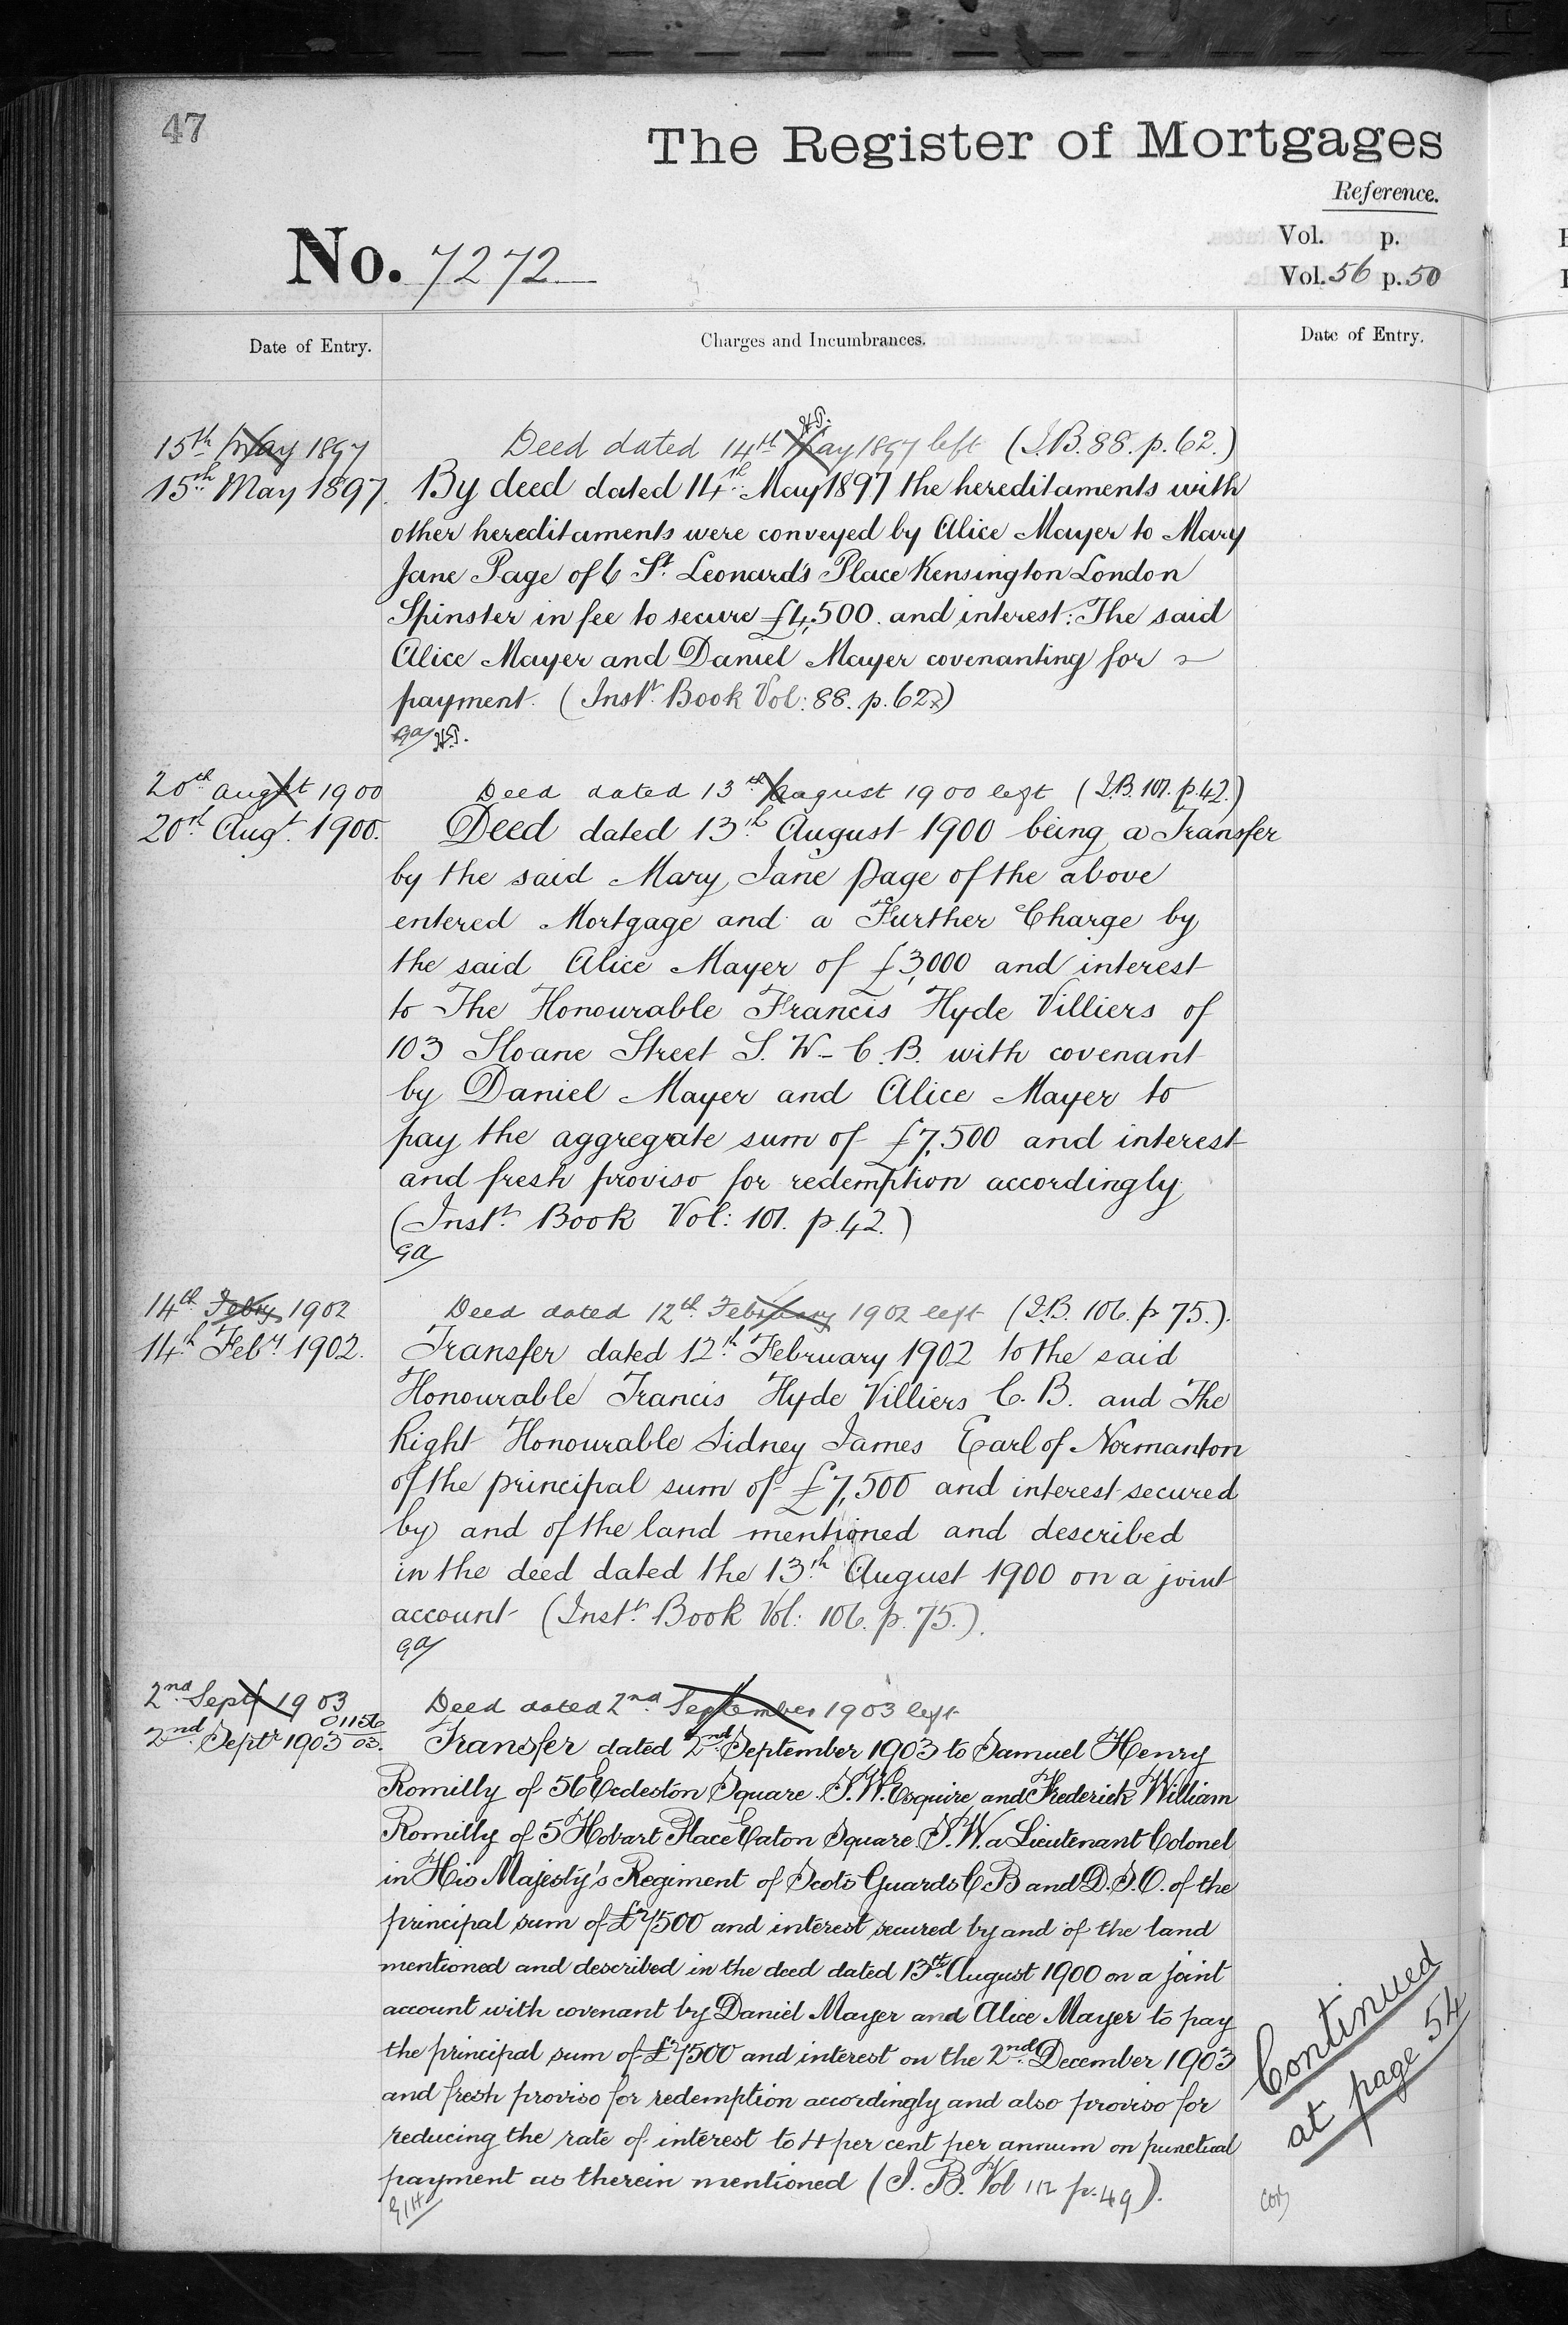 47
The Register of Mortgages
Reference.
Vol. p.
No. 7272
Vol. 56 p. 50
Date of Entry.
Charges and Incumbrances.
Date of Entry.
15th May 1897
Deed dated 14th May 1897 left (I.B. 88. p. 62.)
15th May 1897.
By deed dated 14th May 1897 the hereditaments with
other hereditaments were conveyed by Alice Mayer to Mary
Jane Page of 6 St. Leonard's Place Kensington London
Spinster in fee to secure £4,500. and interest: The said
Alice Mayer and Daniel Mayer covenanting for
payment. (Inst. Book Vol: 88. p. 62)
ga
20th Augst 1900
Deed dated 13th August 1900 left (I.B. 101. p. 42.)
20th Augt. 1900.
Deed dated 13th August 1900 being a Transfer
by the said Mary Jane Page of the above
entered Mortgage and a Further Charge by
the said Alice Mayer of £3,000 and interest
to The Honourable Francis Hyde Villiers of
103 Sloane Street S. W. C.B. with covenant
by Daniel Mayer and Alice Mayer to
pay the aggregate sum of £7,500 and interest
and fresh proviso for redemption accordingly
(Inst. Book Vol: 101. p. 42.)
ga
14th Febry 1902
Deed dated 12th February 1902 left (I.B. 106. p 75.).
14th Feby 1902.
Transfer dated 12th February 1902 to the said
Honourable Francis Hyde Villiers C. B. and The
Right Honourable Sidney James Earl of Normanton
of the principal sum of £7,500 and interest secured
by and of the land mentioned and described
in the deed dated the 13th August 1900 on a joint
account (Inst. Book Vol: 106. p. 75.).
ga
2nd Sept 1903
Deed dated 2nd September 1903 left
01156
2nd Septr 1903 03.
Transfer dated 2nd September 1903 to Samuel Henry
Romilly of 56 Eccleston Square. S.W. Esquire and Frederick William
Romilly of 5 Hobart Place Eaton Square. S.W. a Lieutenant Colonel
in His Majesty's Regiment of Scots Guards C B and D.S.O. of the
principal sum of £7500 and interest secured by and of the land
mentioned and described in the deed dated 13th August 1900 on a joint
account with covenant by Daniel Mayer and Alice Mayer to pay
the principal sum of £7500 and interest on the 2nd December 1903
and fresh proviso for redemption accordingly and also proviso for
reducing the rate of interest to 4 per cent per annum on punctual
payment as therein mentioned (I. B. Vol 112 p. 49).
Continued
at page 54